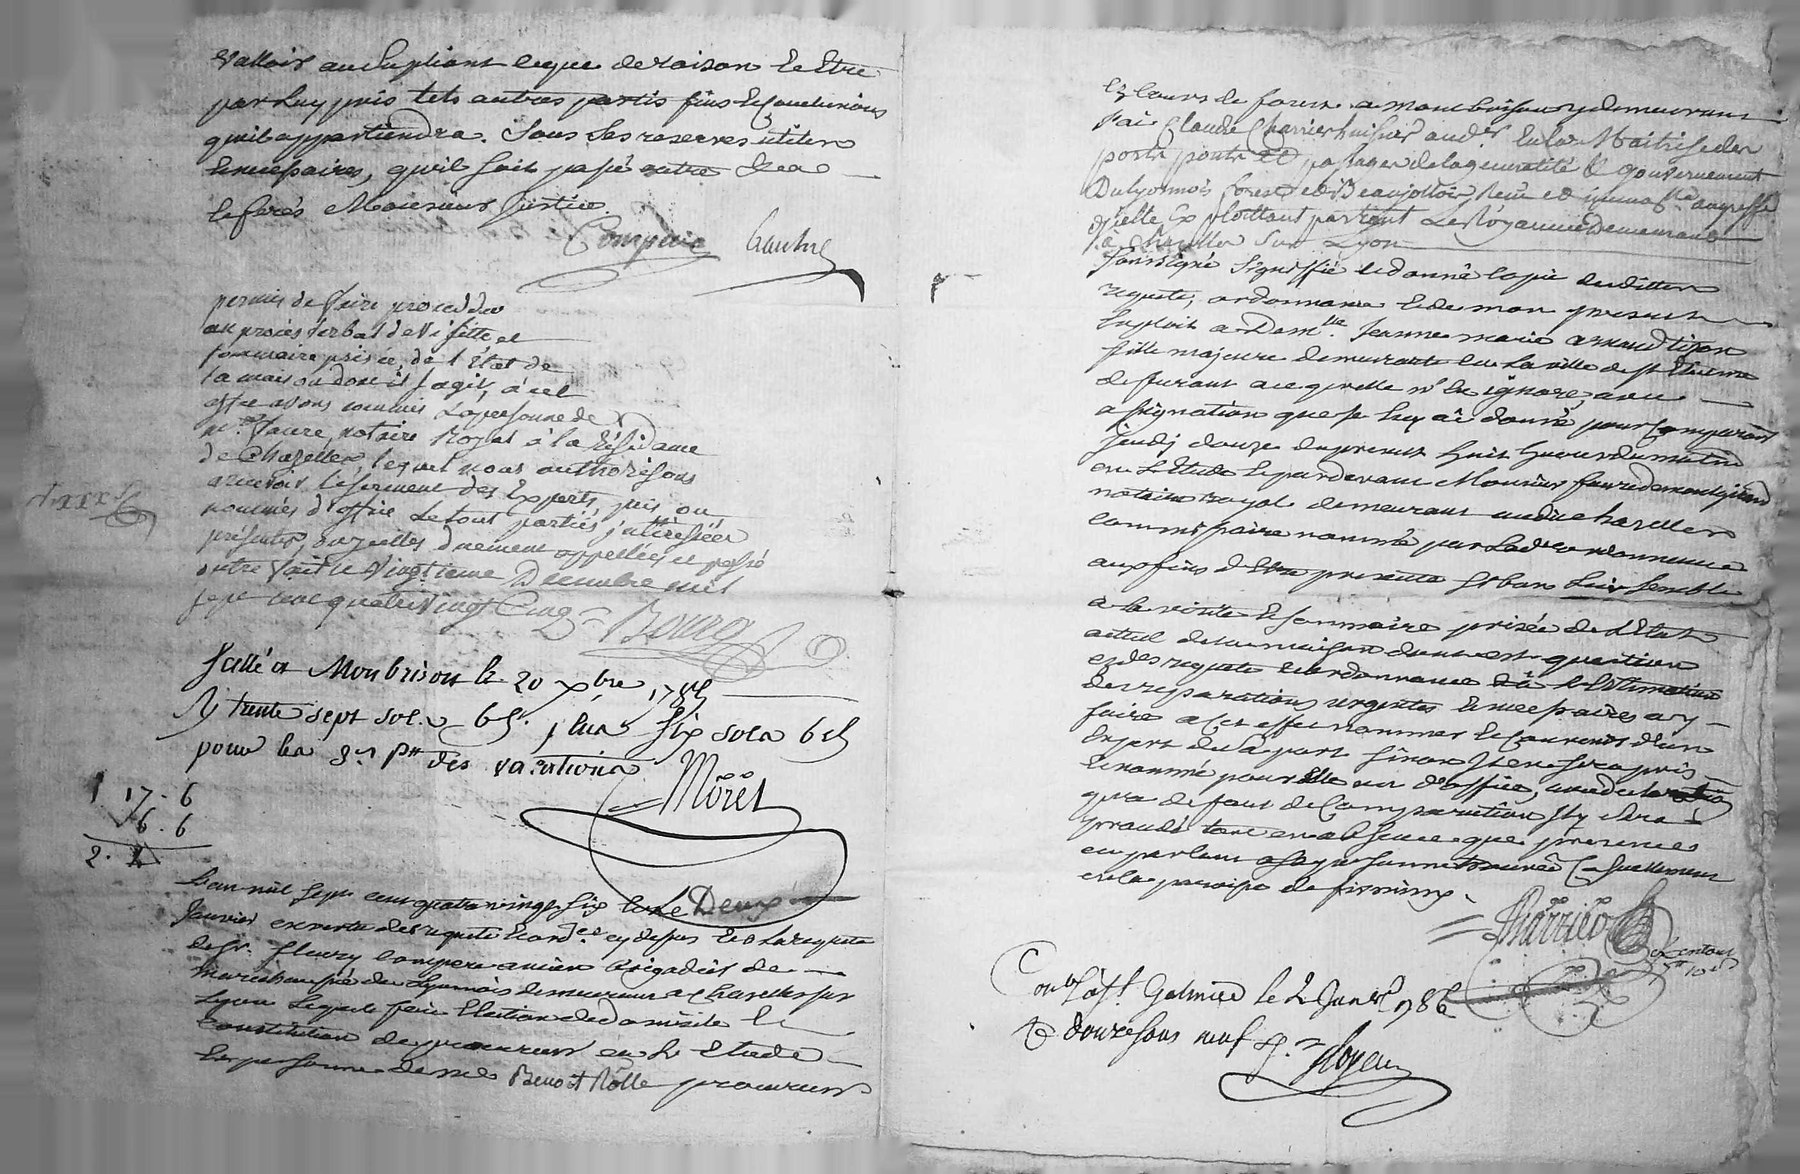 valloir au supliant ce que de raison et Etre
par luy pris tels autres partis fins et Conclusions
qu'il appartiendra. Sous ses reserves utiles
et necessaires, qu'il soit passé outre
Messieurs justice.
Compere
permis de faire proceder
au procès verbal de visitte et
sommaire prisée, de l'État de
la maison dont il s'agit, à cet
effet avons commis la personne de
m.e Faure, notaire Royal à la Résidance
de Chazelles, lequel nous authorisons
a recevoir le serment des Experts, pris ou
nommés d'office le tout parties intéressées
présentes, ou icelles duement appellées et passé
outre fait le vingtieme Decembre mil
sept cent quatre vingt Cinq
Bourg
Scellé a Monbrison le 20 xbre 1785
R trente sept sols 6 d. plus six sols 6 d
pour les 8 s. p.r des vacations
Moret
1 17 - 6
6 . 6
2 .
L'an mil sept cent quatre vingt six le Deux
Janvier en vertu des requete et ord.ces cy dessus et a la requete
de sr. fleury compere ancien brigadier de
marechaussée du Lyonnois demeurant a Chazelles sur
Lyon lequel fait Election de domicile et
constitution de procureur en l'Etude
et personne de me Benoit Rolle procureur
es cours de forez a montbrison y demeurant
j'ai Claude Charrier huissier aud.er en la Maitrise des
ports ponts et passages de la generalité & gouvernement
Du Lyonnois forest et Beaujollois, Reçu et immat.lé au greffe
d'icelle Exploittant partout Le Royaume Demeurant
à Chazelles Sur Lyon
soussigné signiffié et donné copie desdittes
requete, ordonnance et de mon present
Exploit a Dem.lle Jeanne marie arnaud tizon
fille majeure demeurante en la ville de st Etienne
de furant a ce qu'elle n'en ignore, avec
assignation que je luy ai donné pour Comparoir
jeudi douze du present huit heures du matin
en l'Etude et pardevant Monsieur faure de montgirard
notaire royal demeurant audit chazelles
commissaire nommé par lad.e ordonnance
aux fins d'Etre presente si bon luy semble
a la visite et sommaire prisée de l'Etat
actuel de la maison dont est question
es des requete et ordonnance
des reparations urgentes et necessaires a y
faire a cet effet nommer et Convenir d'un
Expert de sa part sinon il en sera pris
et nommé pour elle un d'office, avec declaration
qu'a defaut de Comparution il y sera
procedé tant en absence que presence
en parlant a sa personne trouvée Casuellement
en la paroisse de firminy.
Charrier
Contlé a St Galmier le 2 Janer 1786
R douze sous neuf d.